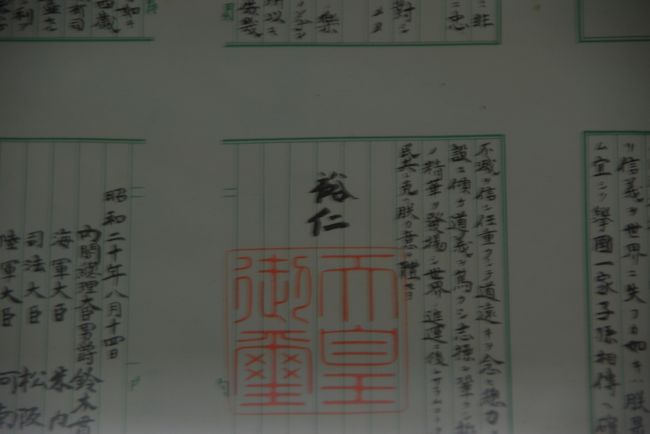 リ信義ヲ世界ニ失フカ如キハ朕最
ム宜シク擧國一家子孫相傳ヘ確
不滅ヲ信シ任重クシテ道遠キヲ念ヒ總力ヲ
設ニ傾ケ道義ヲ篤クシ志操ヲ鞏クシ誓
ノ精華ヲ發揚シ世界ノ進運ニ後レサラムコト
民其レ克ク朕カ意ヲ體セヨ
裕仁
天皇
御璽
昭和二十年八月十四日
内閣總理大臣男爵 鈴木貫
海軍大臣 米内
司法大臣 松阪
陸軍大臣 阿南